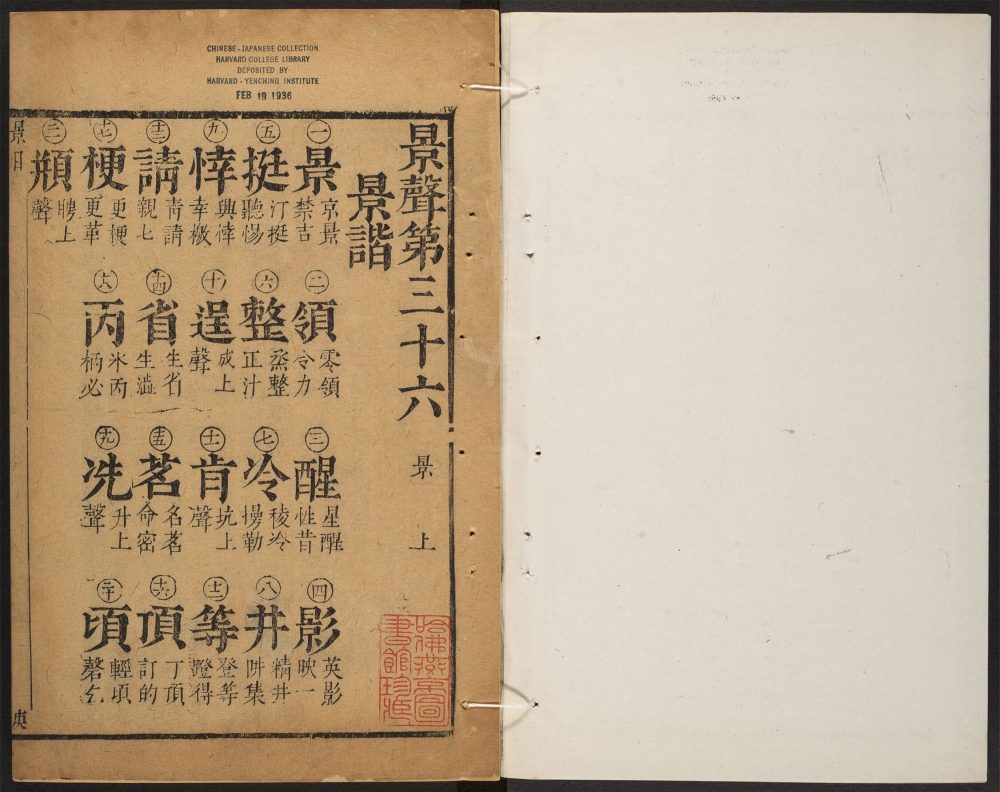 CHINESE - JAPANESE COLLECTION
HARVARD COLLEGE LIBRARY
DEPOSITED BY
HARVARD - YENCHING INSTITUTE
FEB 18 1936
景聲第三十六 景上
景諧
一景京景禁吉 二領零領令力 三醒星醒性昔 四影英影映一
五挺汀挺聽惕 六整烝整正汁 七冷稜冷㘄勒 八井精井阱集
九悻興悻幸檄 十逞成上聲 十一肯坑上聲 十二等登等蹬得
十三請青請親七 十四省生省生澁 十五茗名茗命密 十六頂丁頂訂的
十七梗更梗更革 十八丙氷丙柄必 十九冼升上聲 二十頃輕頃磬乞
二一頩聘上聲
景
哈佛燕京圖
書館珍藏